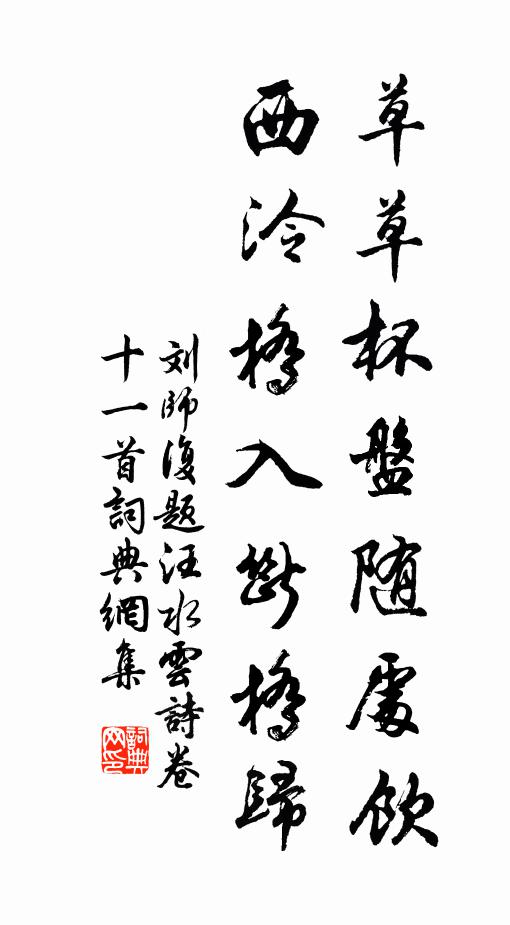 草草杯盤随處飲
西泠橋入斷橋歸
刘師復题汪水雲詩卷
十一首詞典網集
詞典網印